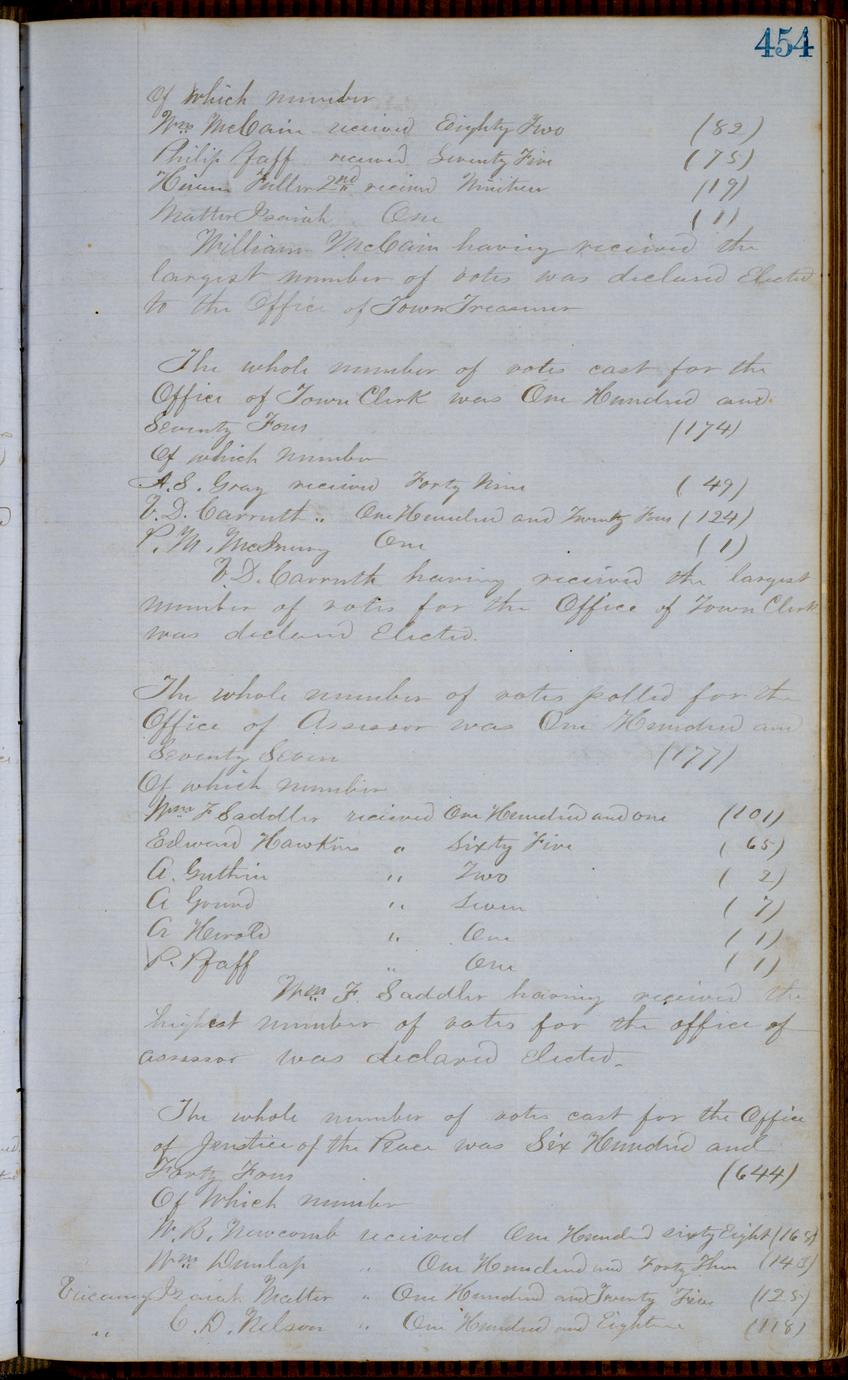 454
Of which number
Wm McCain received Eighty Two (82)
Philip Pfaff received Seventy Five (75)
Hiram Fuller 2nd recived Nineteen (19)
Matter Isaiah One (1)
William McCain having received the
largest number of votes was declared Elected
to the Office of Town Treasurer
The whole number of votes cast for the
Office of Town Clerk was One Hundred and
Seventy Four (174)
Of which number
A.S. Gray received Forty Nine (49)
V.D. Carruth " One Hundred and Twenty Four (124)
P.M. One (1)
V.D. Carruth having received the largest
number of votes for the Office of Town Clerk
was declared Elected.
The whole number of votes polled for the
Office of Assessor was One Hundred and
Seventy Seven (177)
Of which number
Wm F Saddler recieved One Hundred and one (101)
Edward Hawkins " Sixty Five (65)
A. Guthrie " Two (2)
A " Seven (7)
A Herold " One (1)
P. Pfaff " One (1)
Wm F. Saddler having received the
highest number of votes for the office of
assessor was declared Elected.
The whole number of votes cast for the Office
of Justice of the Peace was Six Hundred and
Forty Four (644)
Of Which number
W.B. Newcomb received One Hundred sixty Eight (168)
Wm Dunlap " One Hundred and Forty Three (143)
Vacancy Isaiah Matter " One Hundred and Twenty Five (125)
" C.D. Nelson " One Hundred and Eighteen (118)